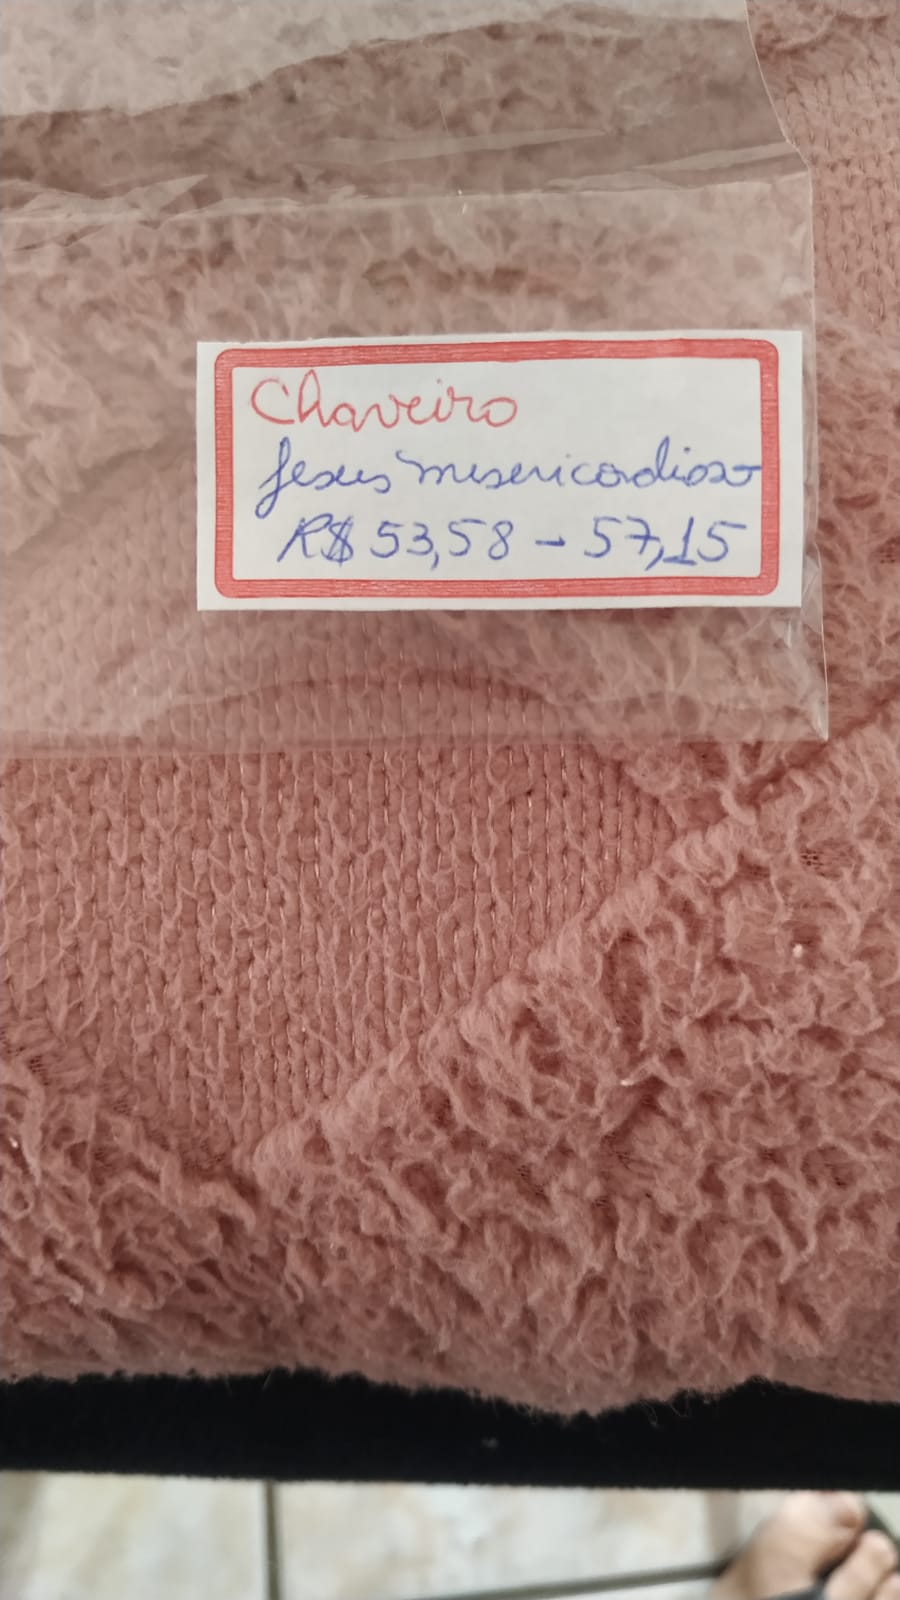 Chaveiro
Jesus misericordioso
R$ 53,58 - 57,15